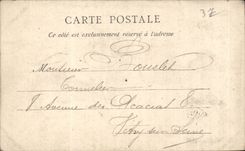 32
CARTE POSTALE
Ce côté est exclusivement réservé à l'adresse
Monsieur Pouclet
Tonnelier
8 Avenue des Acacias
Vitry sur Seine